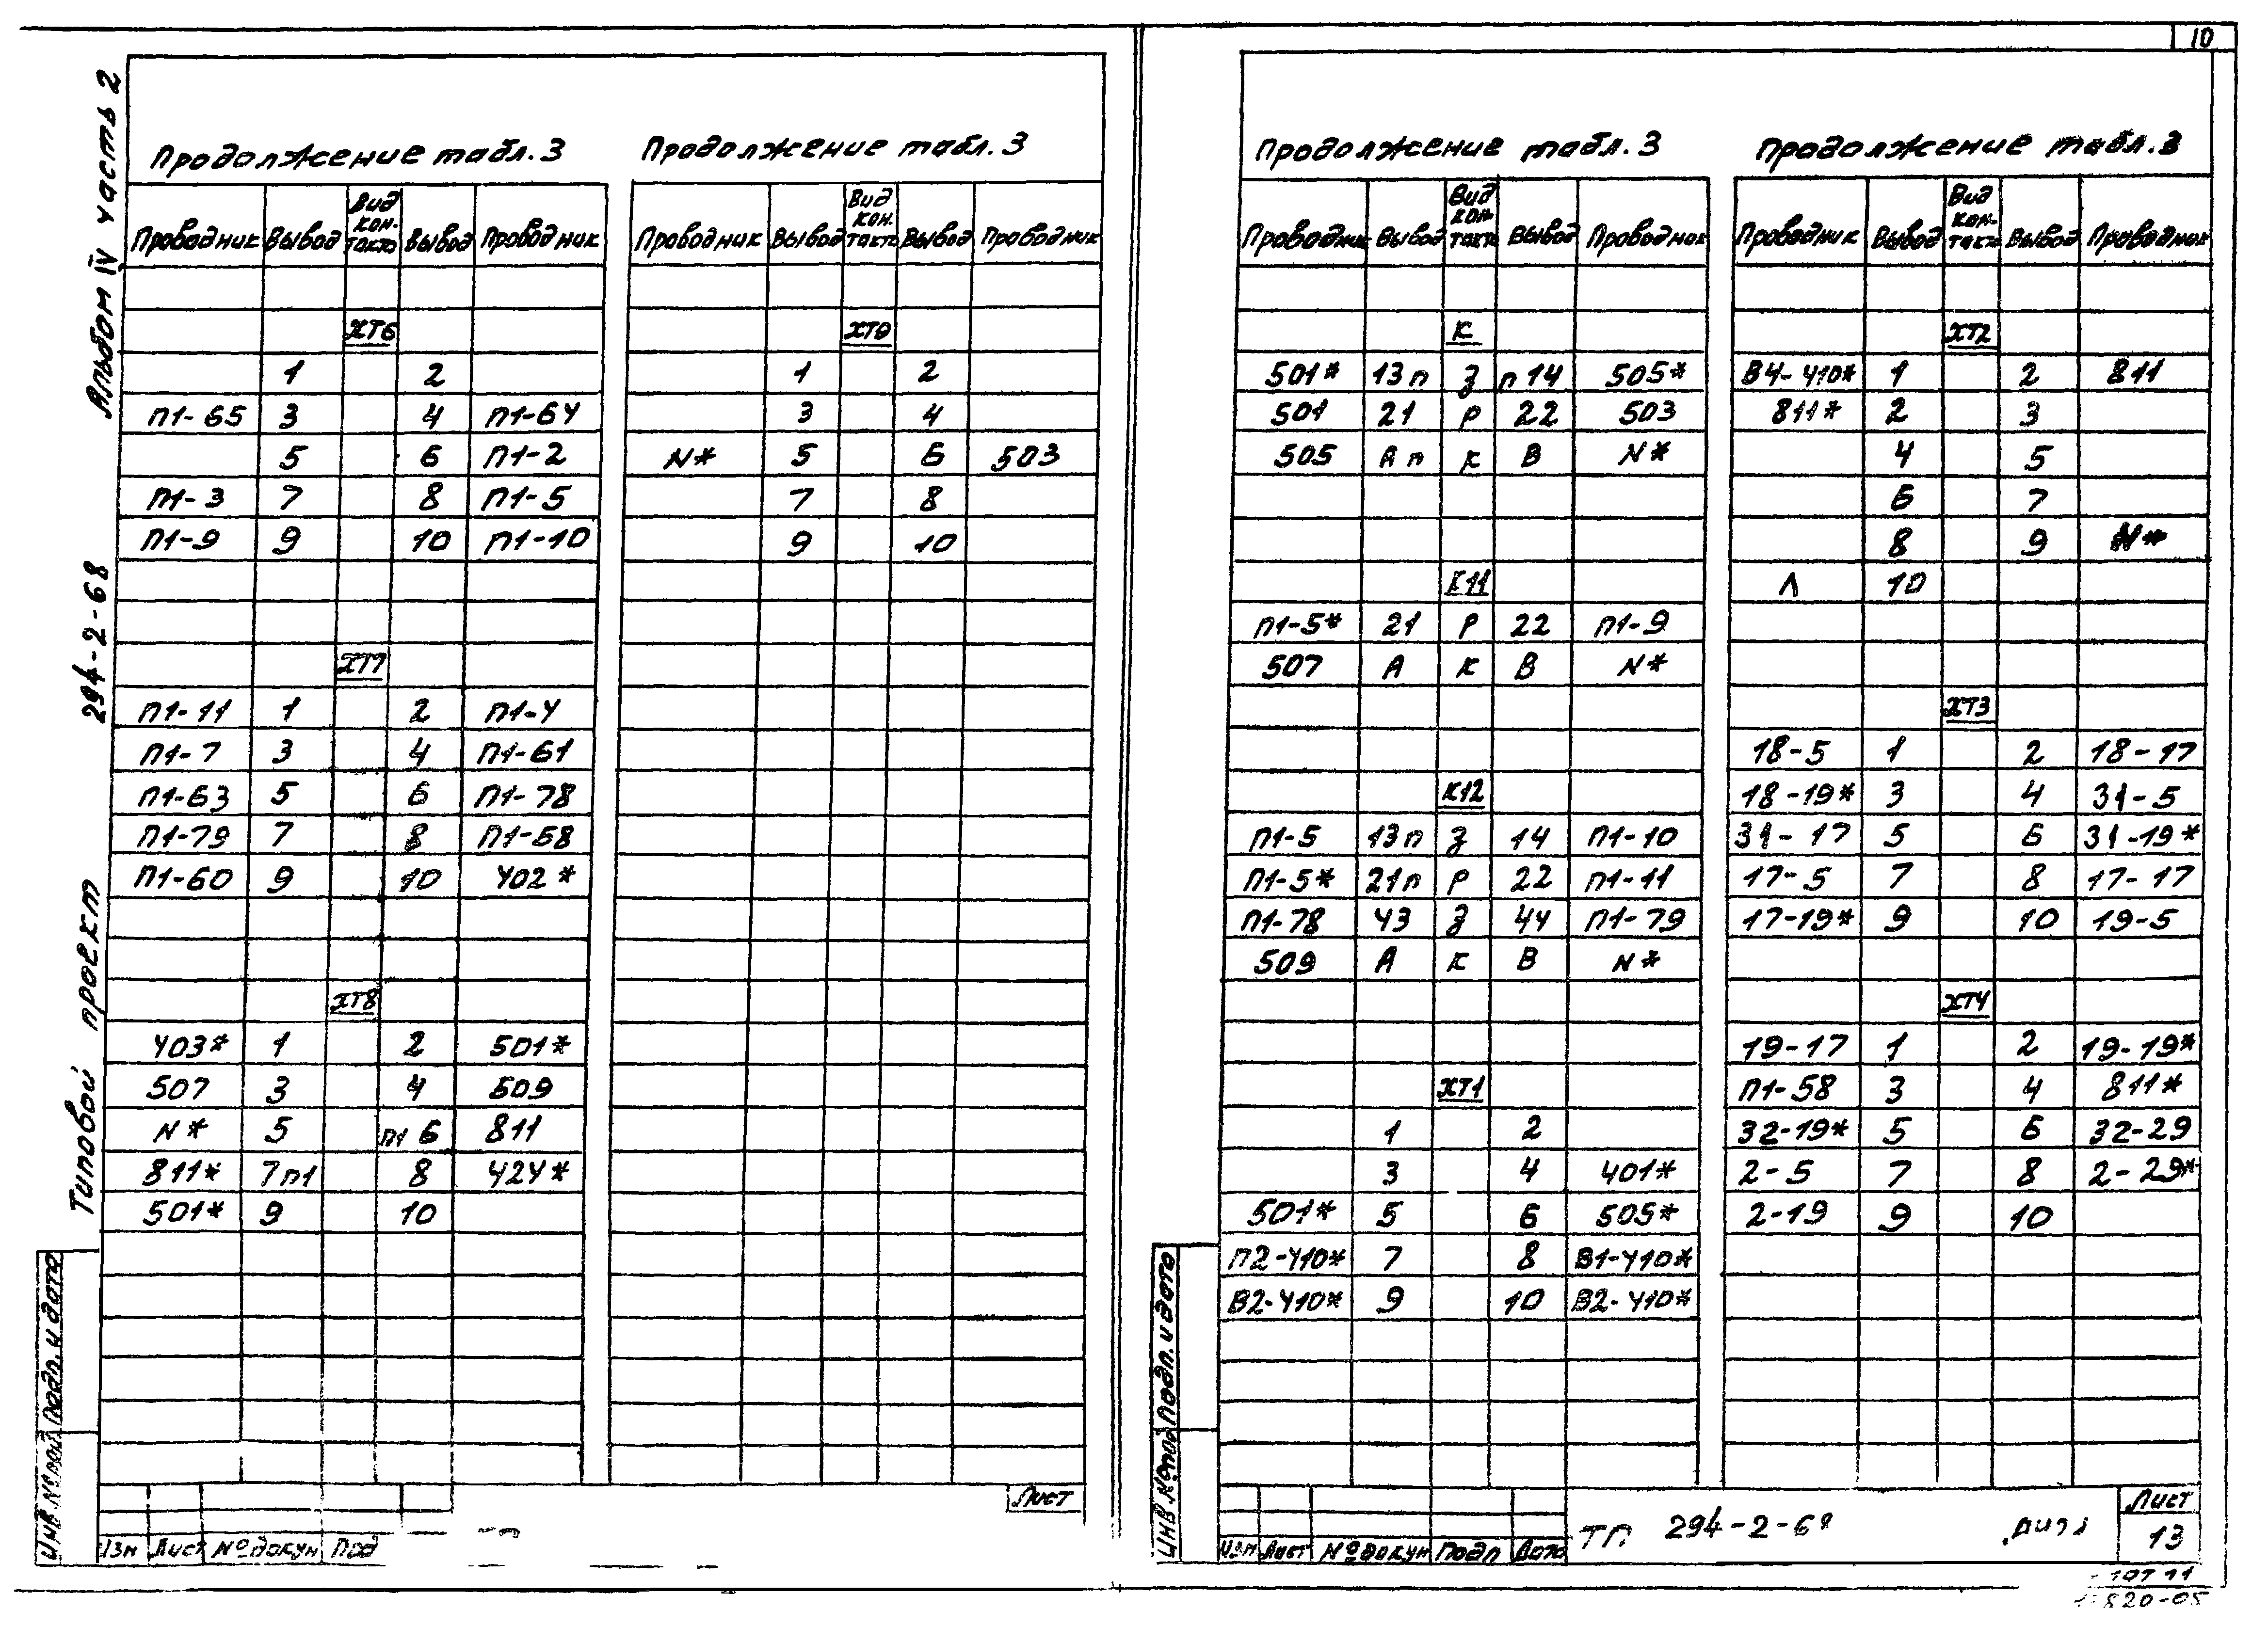 10
Альбом IV часть 2
294-2-68
Типовой проект
Продолжение табл. 3
Проводник Вывод Вид кон-такта Вывод Проводник
ХТ6
1 2
П1-65 3 4 П1-64
5 6 П1-2
П1-3 7 8 П1-5
П1-9 9 10 П1-10
ХТ7
П1-11 1 2 П1-4
П1-7 3 4 П1-61
П1-63 5 6 П1-78
П1-79 7 8 П1-58
П1-60 9 10 402*
ХТ8
403* 1 2 501*
507 3 4 509
N* 5 п1 6 811
811* 7п1 8 424*
501* 9 10
Продолжение табл. 3
Проводник Вывод Вид кон.такта Вывод Проводник
ХТ9
1 2
3 4
N* 5 6 503
7 8
9 10
Инв. № подл Подп. и дата
Изм Лист № докум Под
Лист
Продолжение табл. 3
Проводник Вывод Вид кон-такта Вывод Проводник
К
501* 13п З п14 505*
501 21 Р 22 503
505 Ап К В N*
К11
П1-5* 21 Р 22 П1-9
507 А К В N*
К12
П1-5 13п З 14 П1-10
П1-5* 21п Р 22 П1-11
П1-78 43 З 44 П1-79
509 А К В N*
ХТ1
1 2
3 4 401*
501* 5 6 505*
П2-410* 7 8 В1-410*
В2-410* 9 10 В2-410*
Продолжение табл. 3
Проводник Вывод Вид кон-такта Вывод Проводник
ХТ2
В4-410* 1 2 811
811* 2 3
4 5
6 7
8 9 N*
Л 10
ХТ3
18-5 1 2 18-17
18-19* 3 4 31-5
31-17 5 6 31-19*
17-5 7 8 17-17
17-19* 9 10 19-5
ХТ4
19-17 1 2 19-19*
П1-58 3 4 811*
32-19* 5 6 32-29
2-5 7 8 2-29*
2-19 9 10
Инв. № подл Подп. и дата
Изм Лист № докум Подп Дата
ТП 294-2-68
Лист
13
820-05